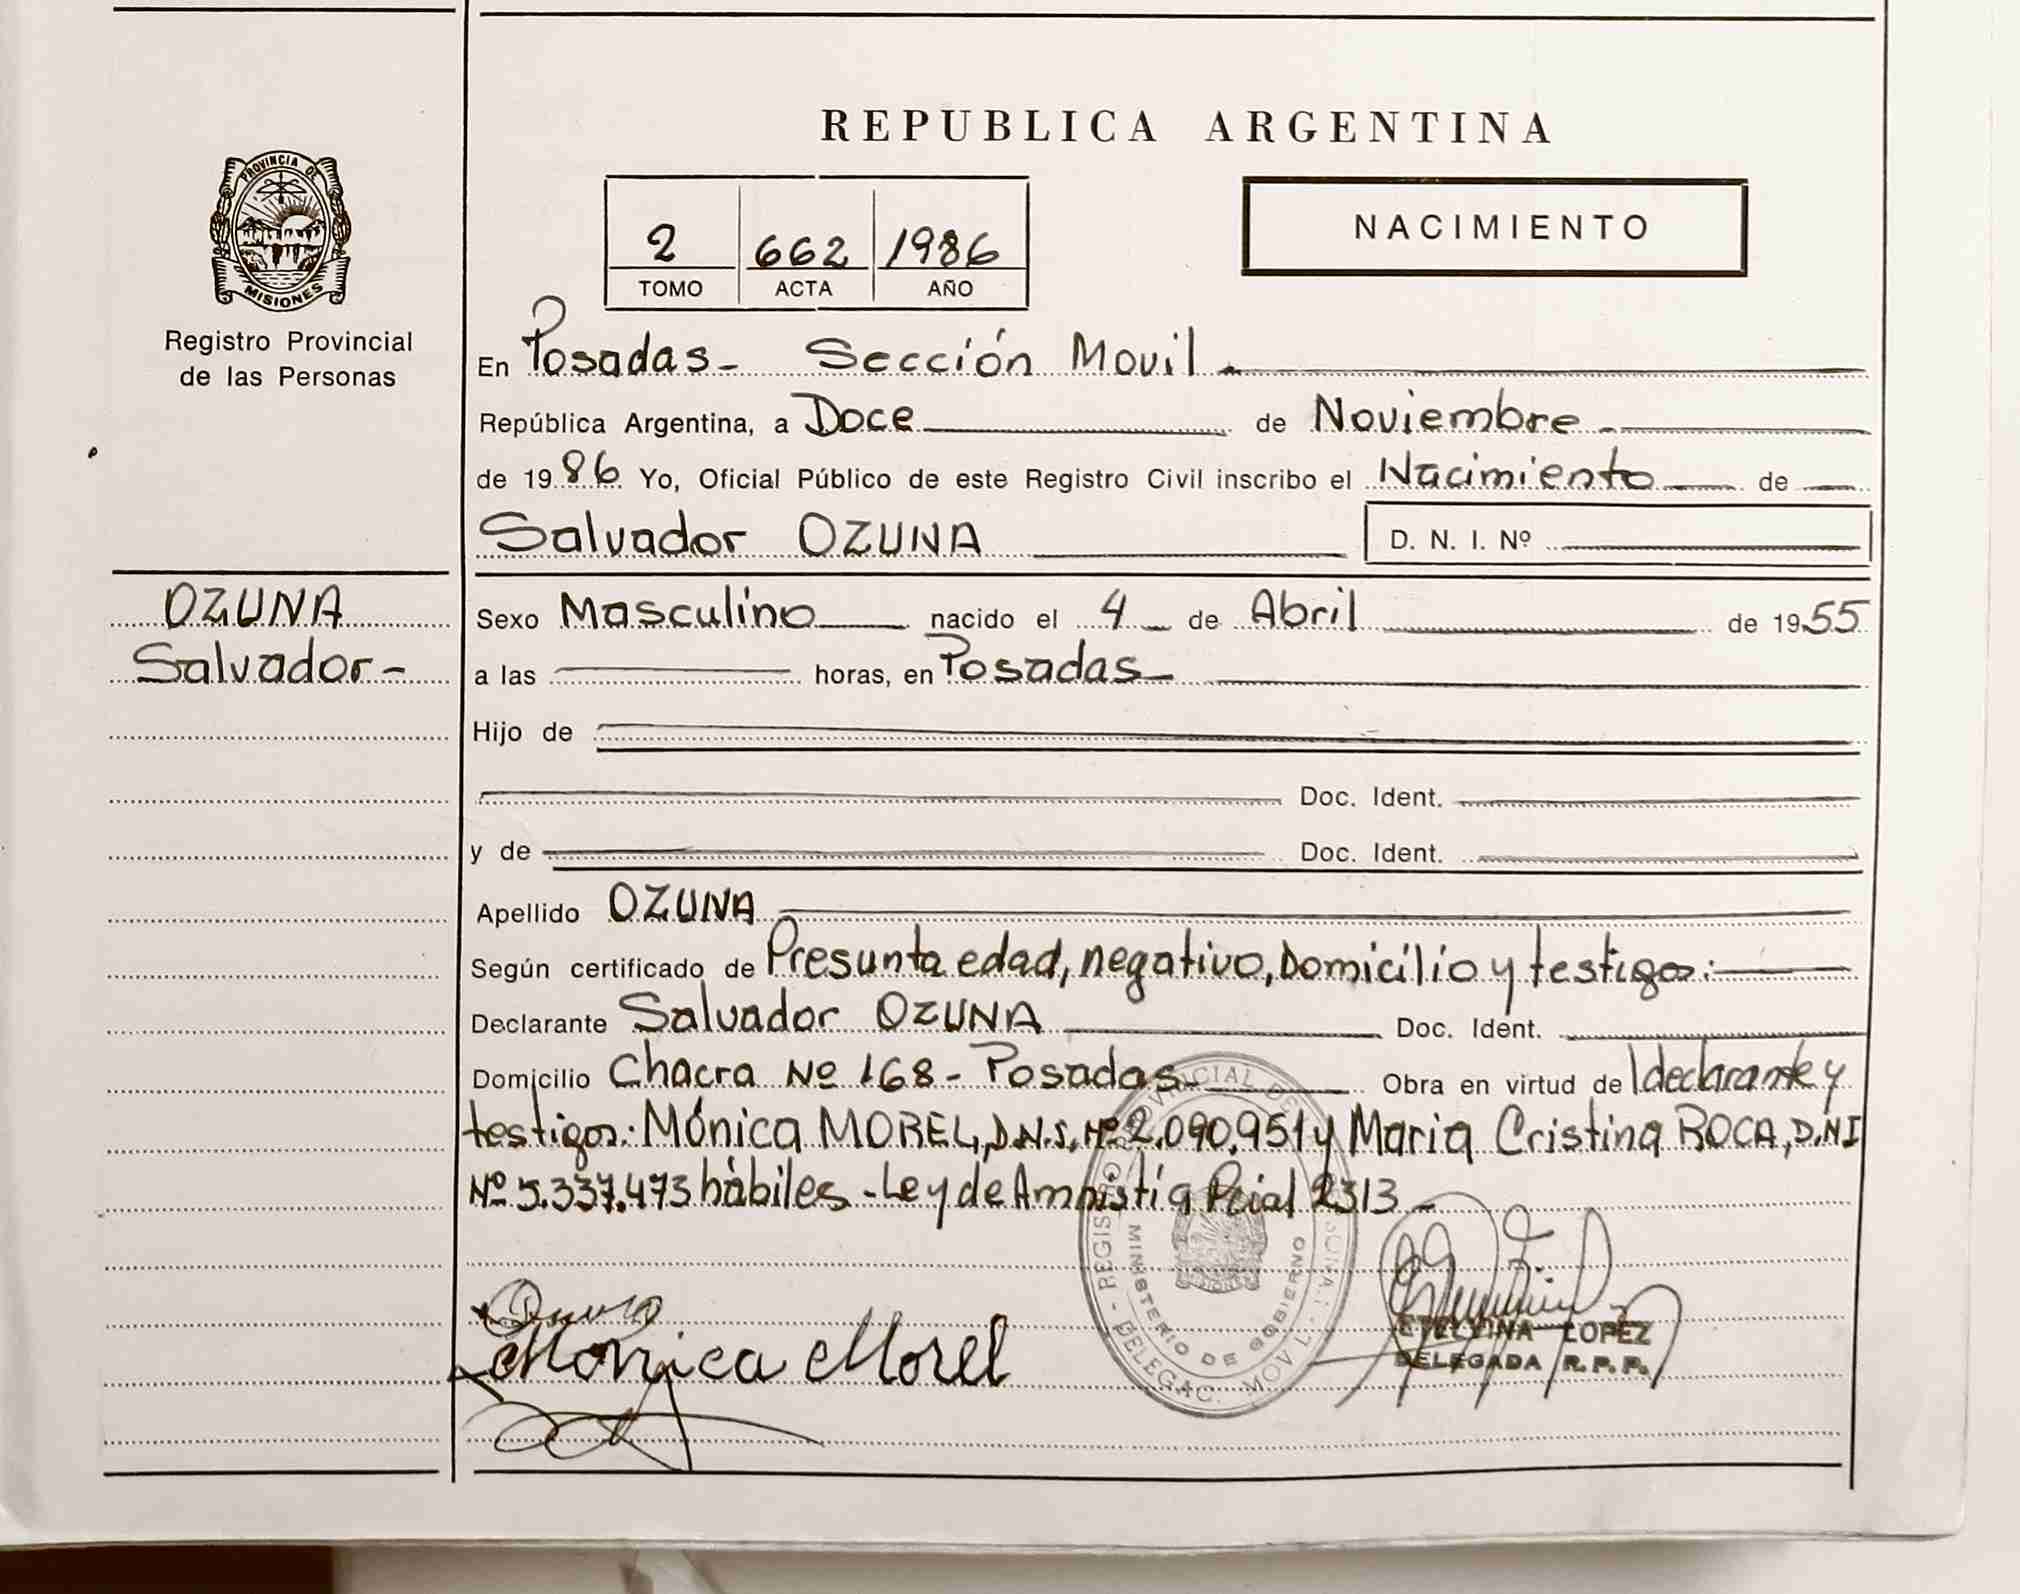 REPUBLICA ARGENTINA
PROVINCIA DE
MISIONES
Registro Provincial
de las Personas
2 662 1986
TOMO ACTA AÑO
NACIMIENTO
En Posadas - Sección Movil
República Argentina, a Doce de Noviembre
de 1986 Yo, Oficial Público de este Registro Civil inscribo el Nacimiento de
Salvador OZUNA D. N. I. Nº
OZUNA
Salvador -
Sexo Masculino nacido el 4 de Abril de 1955
a las horas, en Posadas
Hijo de
Doc. Ident.
y de Doc. Ident.
Apellido OZUNA
Según certificado de Presunta edad, negativo, Domicilio y testigos:
Declarante Salvador OZUNA Doc. Ident.
Domicilio Chacra Nº 168 - Posadas - Obra en virtud de l declarante y
testigos: Mónica MOREL, D.N.I. Nº 2.090.951 y Maria Cristina ROCA, D.NI
Nº 5.337.473 hábiles - Ley de Amnistía Pcial 2313 -
Ozuna
Monica Morel
ETELVINA LOPEZ
DELEGADA R. P. P.
REGISTRO PROVINCIAL DE
MINISTERIO DE GOBIERNO
DELEGAC. MOVIL